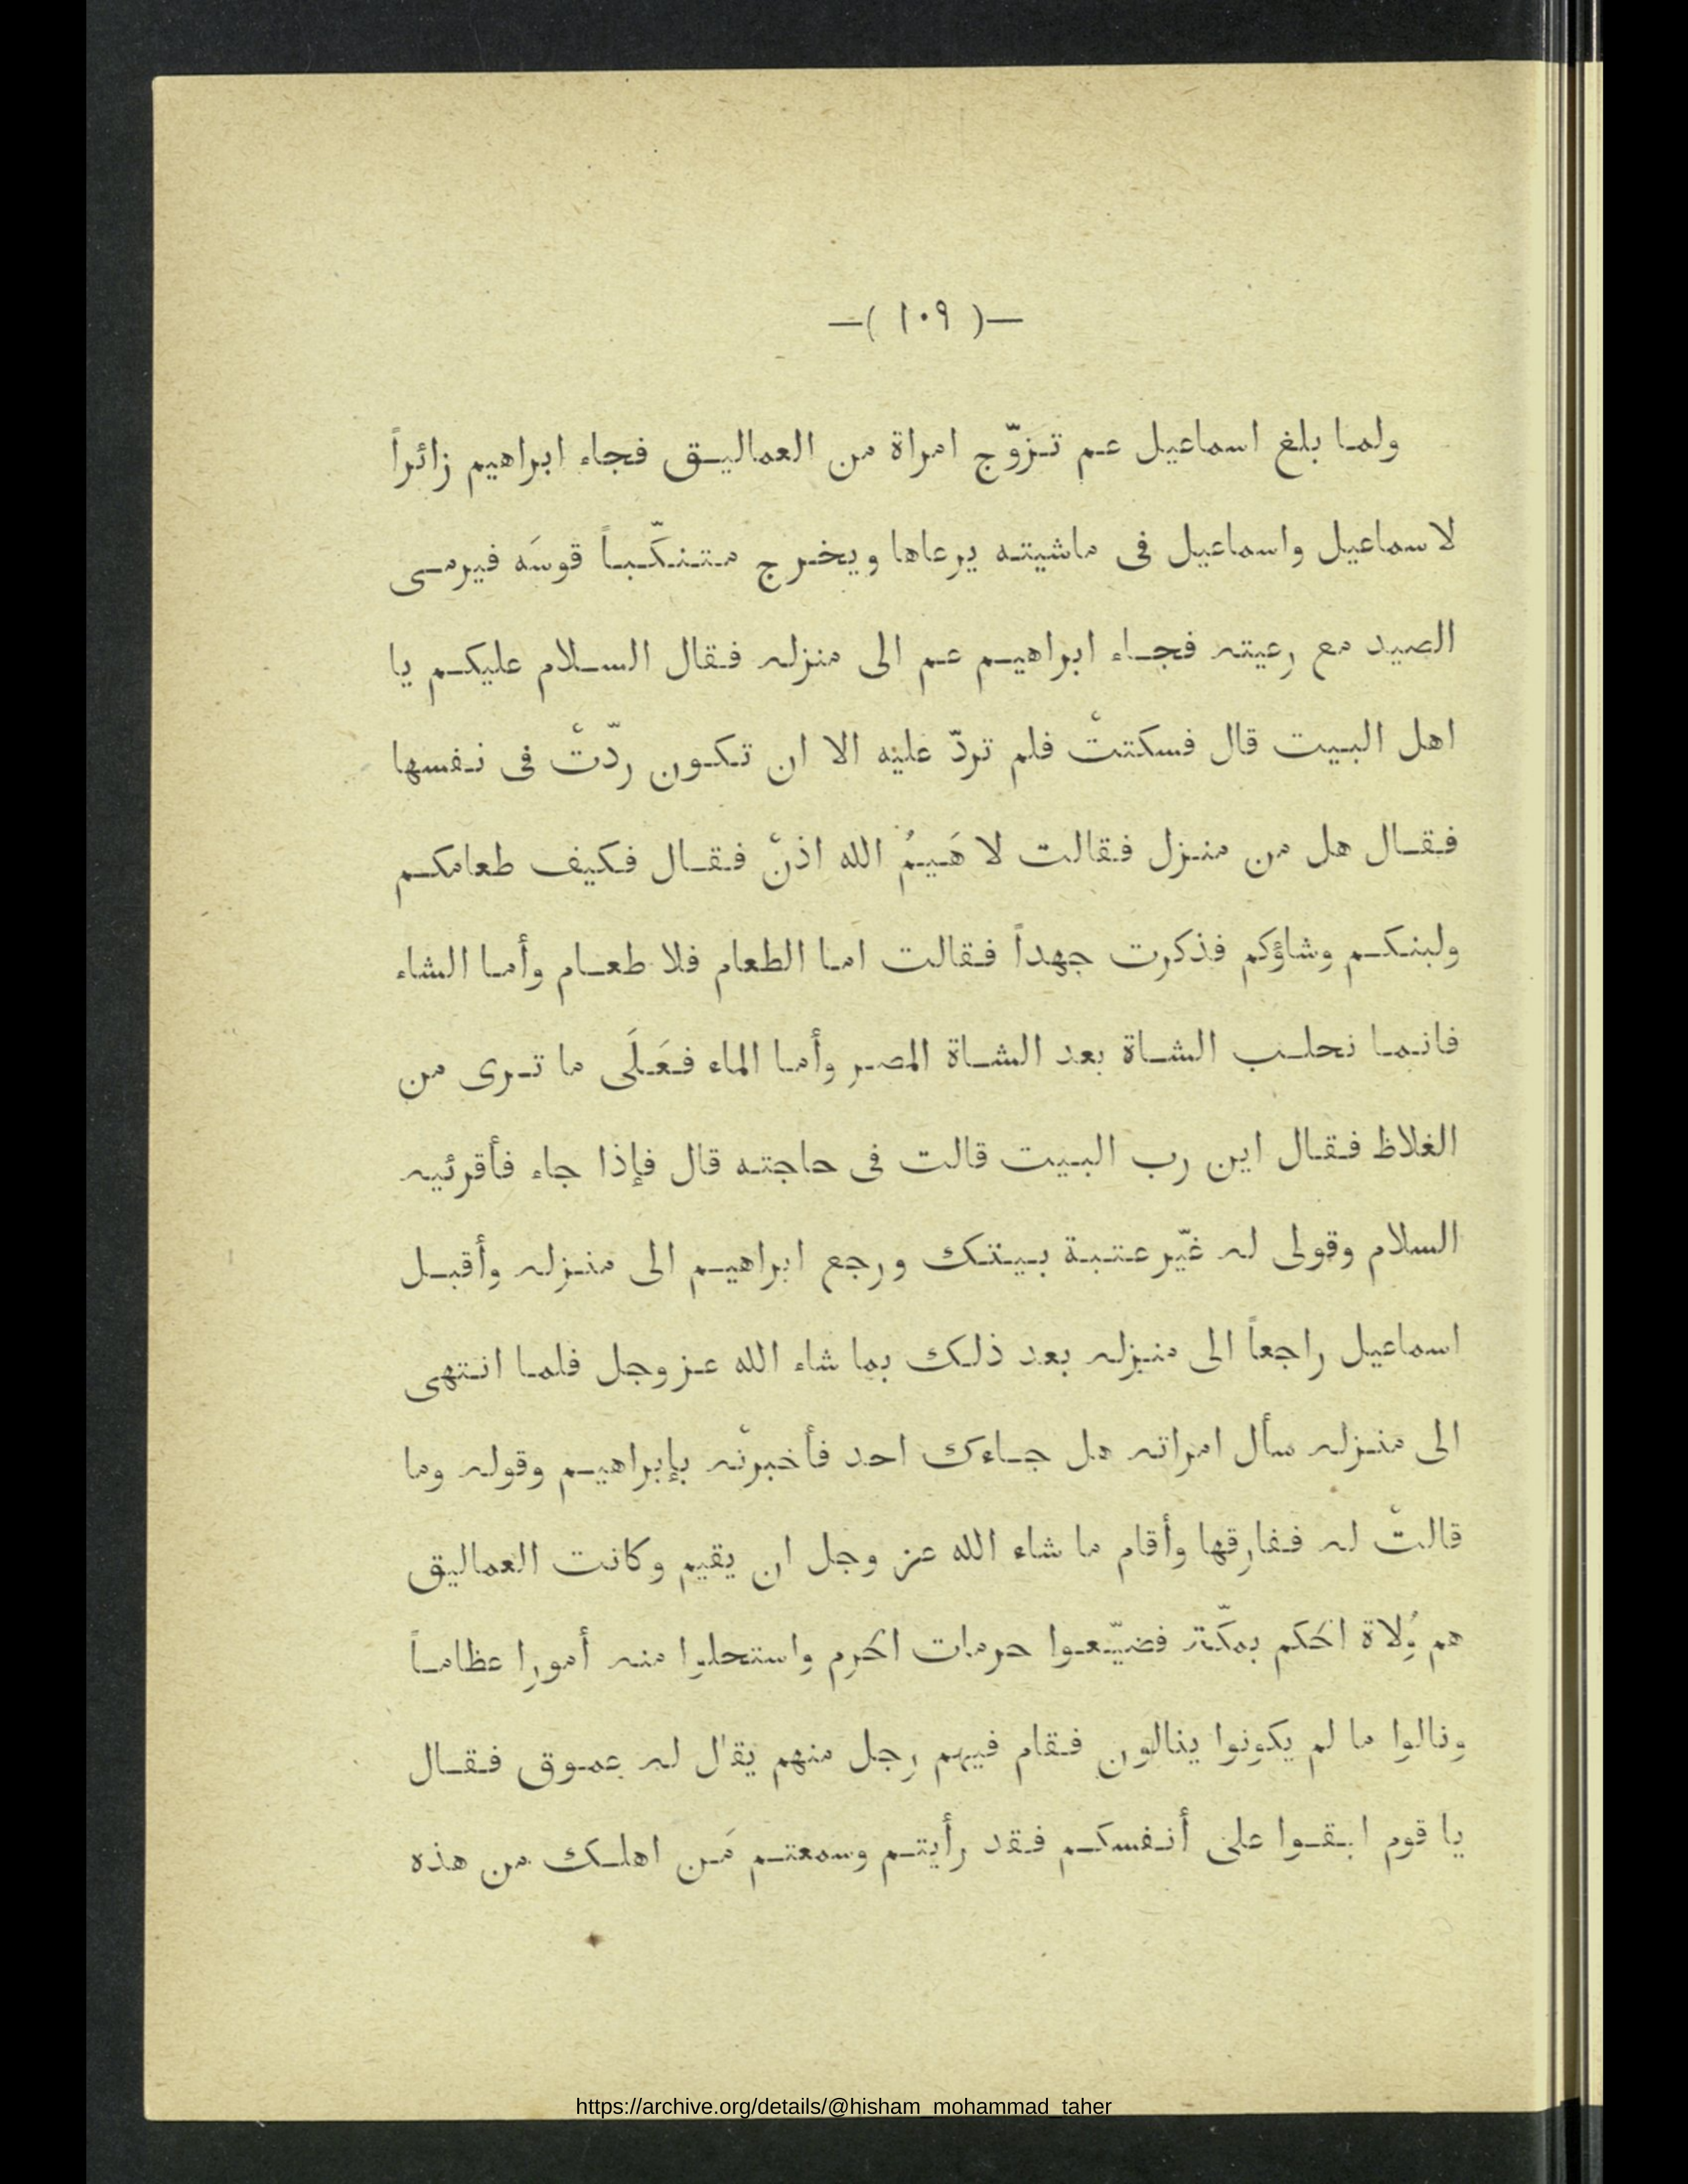 —( ١٠٩ )—
ولما بلغ اسماعيل عم تزوّج امراة من العماليق فجاء ابراهيم زائراً
لاسماعيل واسماعيل فى ماشيته يرعاها ويخرج متنكّباً قوسَه فيرمى
الصيد مع رعيته فجاء ابراهيم عم الى منزله فقال السلام عليكم يا
اهل البيت قال فسكتتْ فلم تردّ عليه الا ان تكون ردّتْ فى نفسها
فقال هل من منزل فقالت لا هَيمُ الله اذنْ فقال فكيف طعامكم
ولبنكم وشاؤكم فذكرت جهداً فقالت اما الطعام فلا طعام وأما الشاء
فانما نحلب الشاة بعد الشاة المصر وأما الماء فعَلَى ما ترى من
الغلاظ فقال اين رب البيت قالت فى حاجته قال فإذا جاء فأقرئيه
السلام وقولى له غيّر عتبة بيتك ورجع ابراهيم الى منزله وأقبل
اسماعيل راجعاً الى منزله بعد ذلك بما شاء الله عز وجل فلما انتهى
الى منزله سأل امراته هل جاءك احد فأخبرتْه بإبراهيم وقوله وما
قالتْ له ففارقها وأقام ما شاء الله عز وجل ان يقيم وكانت العماليق
هم وُلاة الحكم بمكّة فضيّعوا حرمات الحرم واستحلوا منه أمورا عظاماً
ونالوا ما لم يكونوا ينالون فقام فيهم رجل منهم يقال له عموق فقال
يا قوم ابقوا على أنفسكم فقد رأيتم وسمعتم مَن اهلك من هذه
https://archive.org/details/@hisham_mohammad_taher